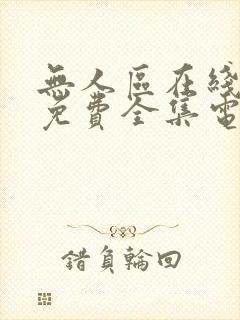 無人區在綫
免費全集電
錯負輪回